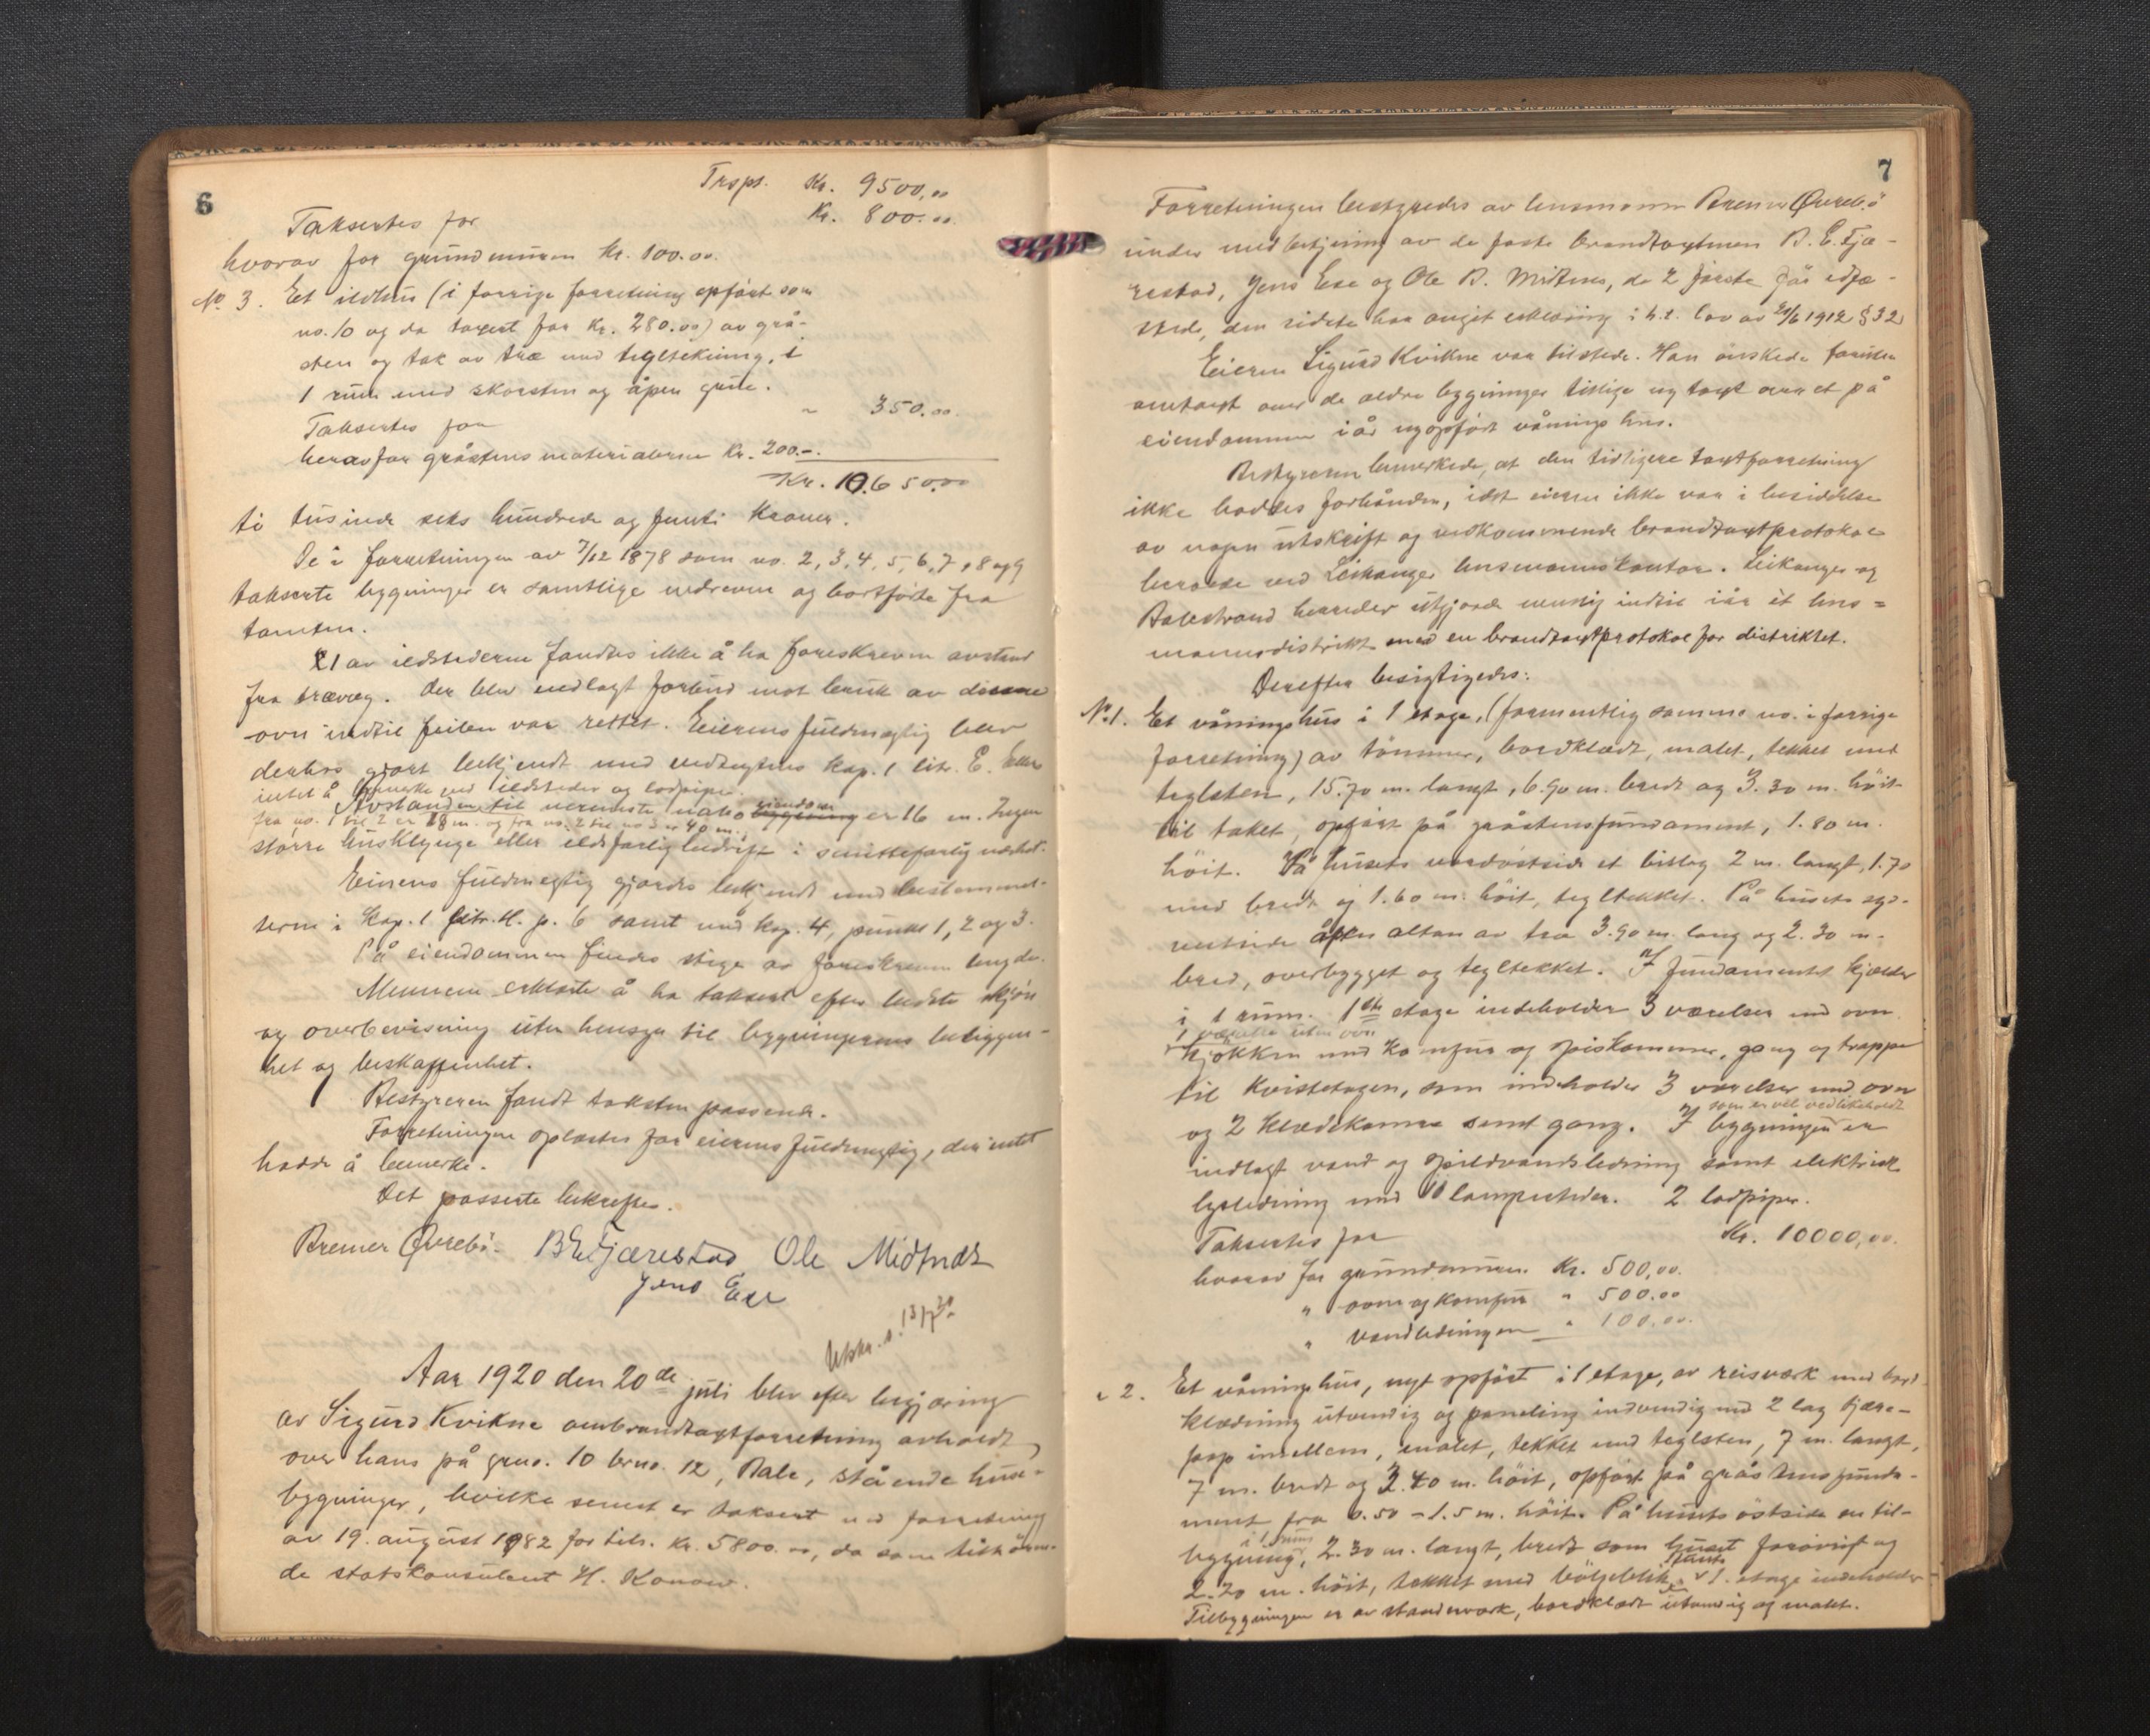 6
Trspt. Kr. 9500,00
Taksertes for Kr. 800.00.
hvorav for grundmuren Kr. 100.00.
No. 3. Et ildhus (i forrige forretning opført som
no. 10 og da taxert for Kr. 280.00) av grå-
sten og tak av træ med tegltekning, i
1 rum med skorsten og åpen grue.
Taksertes for " 350.00.
herav for gråstensmaterialerne Kr. 200.-.
Kr. 10.650.00
ti tusinde seks hundrede og femti Kroner.
De i forretningen av 7/12 1878 som no. 2, 3, 4, 5, 6, 7, 8 og 9
takserte bygninger er samtlige nedrevne og bortførte fra
tomten.
1 av ildstederne fandtes ikke å ha foreskreven avstand
fra trævæg. Der blev nedlagt forbud mot bruk av denne
ovn indtil feilen var rettet. Eierens fuldmægtig blev
derhos gjort bekjendt med vedtægtens kap. 1 litr. E. Ellers
intet å bemerke ved ildsteder og lodpiper.
Avstanden til nermeste nabo eiendom er 16 m. Ingen
fra no. 1 til 2 er 18 m. og fra no. 2 til no 3 er 40 m.
større husklynge eller ildsfarlig bedrift i smittefarlig nærhet.
Eierens fuldmegtig gjordes bekjendt med bestemmel-
serne i Kap. 1 litr. H. p. 6 samt med kap. 4, punkt 1, 2 og 3.
På eiendommen findes stige av foreskreven lengde.
Mennene erklærte å ha taksert efter bedste skjøn
og overbevisning uten hensyn til bygningernes beliggen-
het og beskaffenhet.
Bestyreren fandt taksten passende.
Forretningen oplæstes for eierens fuldmegtig, der intet
hadde å bemerke.
Det passerte bekreftes.
Bremer Øvrebö. B E Fjærestad Ole Midtnes
Jens Ese
Utskr. s. 13/7 20
Aar 1920 den 20de juli blev efter begjæring
av Sigurd Kvikne ombrandtaxtforretning avholdt
over hans på grno. 10 brno. 12, Bale, stående hus-
bygninger, hvilke senest er taksert ved forretning
av 19. august 1882 for tils. Kr. 5800.00, da som tilhören-
de statskonsulent H. Konow.
7
Forretningen bestyredes av lensmann Bremer Øvrebö
under medbetjening av de faste brandtaxtmen B. E. Fjæ-
restad, Jens Ese og Ole B. Midtnes, de 2 første før edfæ-
stede, den sidste har avgit erklæring i h.t. lov av 21/6 1912 § 32
Eieren Sigurd Kvikne var tilstede. Han ønskede foruten
omtaxt over de ældre bygninger tillige ny taxt over et på
eiendommen iår nyopført våningshus.
Bestyreren bemerkede, at den tidligere taxtforretning
ikke haddes forhånden, idet eieren ikke var i besiddelse
av nogen utskrift og vedkommende brandtaxtprotokol
beroede ved Leikanger lensmannskontor. Leikanger og
Balestrand herreder utgjorde nemlig indtil iår èt lens=
mannsdistrikt med en brandtaxtprotokol for distriktet.
Derefter besigtigedes:
No. 1. Et våningshus i 1 etage, (formentlig samme no. i forrige
forretning) av tömmer, bordklædt, malet, tekket med
teglsten, 15.70 m. langt, 6.90 m. bredt og 3.30 m. höit
til taket, opført på gråstensfundament, 1.80 m.
höit. På husets nordöstside et bislag 2 m. langt, 1.70
med bredt og 1.60 m. höit, tegltekket. På husets syd-
vestside åpen altan av træ 3.90 m. lang og 2.30 m.
bred, overbygget og tegltekket. I fundamentet kjælder
i 1 rum. 1ste etage indeholder 3 værelser med ovn
1 værelse uten ovn
kjøkken med komfur og spiskammer, gang og trappe
til Kvistetagen, som indeholder 3 værelser med ovn
og 2 klædekamre samt gang. I bygningen er
som er vel vedlikeholdt
indlagt vand og spildvandsledning samt elektrisk
lysledning med 10 lampesteder. 2 lodpiper.
Taksertes for Kr. 10000,00.
hvorav for grundmuren Kr. 500,00.
" ovne og komfur " 500.00
" vandledningen " 100.00.
" 2. Et våningshus, nyt opført i 1 etage, av reisværk med bord-
klædning utvendig og paneling indvendig med 2 lag tjære-
papp imellem, malet, tekket med teglsten, 7 m. langt,
7 m. bredt og 3.40 m. höit, opført på gråstensfunda-
ment fra 0.50 - 1.5 m. höit. På husets östside en til-
bygning, i 1 rum, 2.30 m. langt, bredt som huset forövrigt og
2.20 m. höit, tekket med bölgeblikk. Husets 1. etage indeholder
Tilbygningen er av standerværk, bordklædt utvendig og malet.